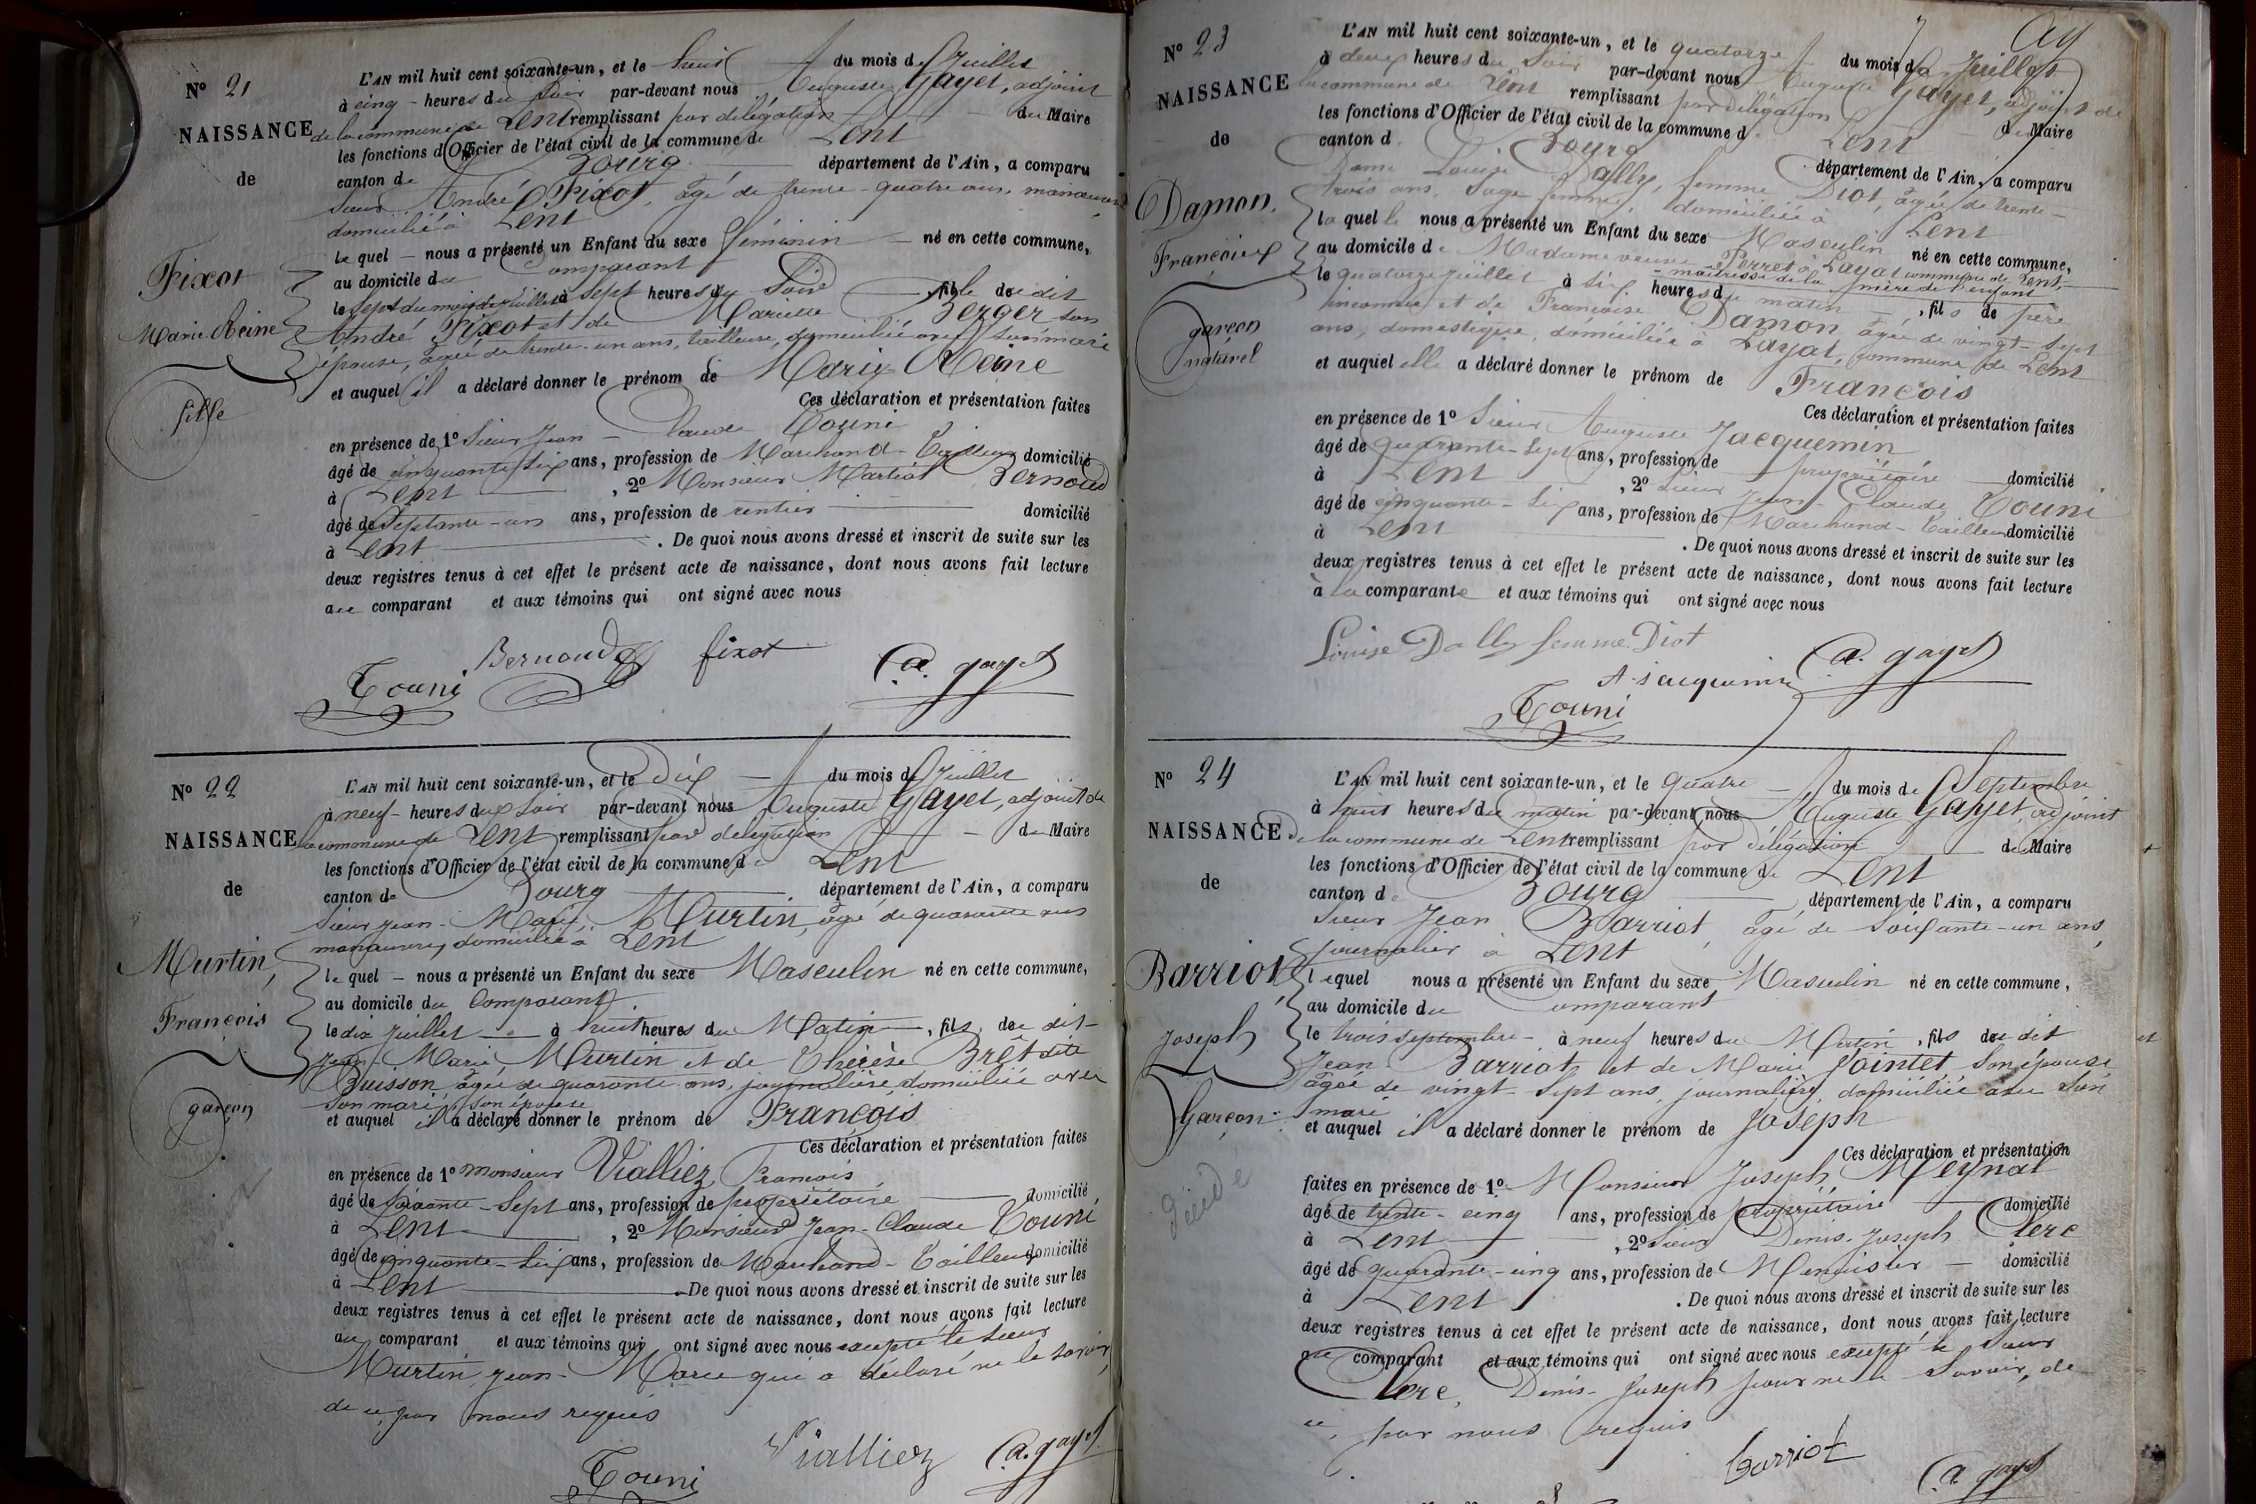 N° 21
NAISSANCE
de
Fixot
Marie Reine
fille
L'AN mil huit cent soixante-un, et le huit du mois de Juillet
à cinq heures du soir par-devant nous Auguste Gayet, adjoint
de la commune de Lent remplissant par délégation du Maire
les fonctions d'Officier de l'état civil de la commune de Lent
canton de Bourg département de l'Ain, a comparu
sieur André Fixot, âgé de trente-quatre ans, manœuvre
domicilié à Lent
le quel nous a présenté un Enfant du sexe féminin né en cette commune,
au domicile du comparant
le sept du mois de juillet à sept heures du soir fille du dit
André Fixot et de Mariette Berger son
épouse, âgée de trente-un ans, tailleuse, domiciliée avec son mari
et auquel il a déclaré donner le prénom de Marie Reine
Ces déclaration et présentation faites
en présence de 1° Sieur Jean-Claude Touni
âgé de cinquante six ans, profession de Marchand-Tailleur domicilié
à Lent, 2° Monsieur Bernoud
âgé de Septante-un ans, profession de rentier domicilié
à Lent. De quoi nous avons dressé et inscrit de suite sur les
deux registres tenus à cet effet le présent acte de naissance, dont nous avons fait lecture
au comparant et aux témoins qui ont signé avec nous
Bernoud fixot
Touni a. gayet
N° 22
NAISSANCE
de
Murtin,
François
garçon
L'AN mil huit cent soixante-un, et le Dix du mois de Juillet
à neuf heures du soir par-devant nous Auguste Gayet, adjoint de
la commune de Lent remplissant par délégation du Maire
les fonctions d'Officier de l'état civil de la commune de Lent
canton de Bourg département de l'Ain, a comparu
Sieur Jean-Marie Murtin, âgé de quarante ans
manœuvre, domicilié à Lent
le quel nous a présenté un Enfant du sexe Masculin né en cette commune,
au domicile du Comparant
le dix juillet à huit heures du Matin, fils du dit
Jean Marie Murtin et de Thérèse Brêt dite
Buisson âgée de quarante ans, journalière domiciliée avec
son mari, son épouse
et auquel il a déclaré donner le prénom de François
Ces déclaration et présentation faites
en présence de 1° Monsieur Vialliez, François
âgé de Soixante-Sept ans, profession de propriétaire domicilié
à Lent, 2° Monsieur Jean-Claude Touni
âgé de cinquante-six ans, profession de Marchand-Tailleur domicilié
à Lent De quoi nous avons dressé et inscrit de suite sur les
deux registres tenus à cet effet le présent acte de naissance, dont nous avons fait lecture
au comparant et aux témoins qui ont signé avec nous excepté le sieur
Murtin, Jean-Marie qui a déclaré ne le savoir,
de ce, par nous requis
Vialliez a. gayet
Touni
N° 23
NAISSANCE
de
Damon,
François
garçon
naturel
L'AN mil huit cent soixante-un, et le quatorze du mois de Juillet
à deux heures du soir par-devant nous Auguste Gayet, adjoint de
la commune de Lent remplissant par délégation du Maire
les fonctions d'Officier de l'état civil de la commune de Lent
canton de Bourg département de l'Ain, a comparu
Dame Louise Dally, femme Diot, âgée de trente-
trois ans, Sage femme, domiciliée à Lent
la quelle nous a présenté un Enfant du sexe Masculin né en cette commune,
au domicile de Madame veuve Perret à Layat commune de Lent,
maîtresse de la mère de l'enfant
le quatorze juillet à six heures du matin, fils de père
inconnu et de Françoise Damon, âgée de vingt-sept
ans, domestique, domiciliée à Layat, commune de Lent
et auquel elle a déclaré donner le prénom de François
Ces déclaration et présentation faites
en présence de 1° Sieur Auguste Jacquemin
âgé de quarante-sept ans, profession de propriétaire domicilié
à Lent, 2° Sieur Jean-Claude Touni
âgé de cinquante-six ans, profession de Marchand-Tailleur domicilié
à Lent. De quoi nous avons dressé et inscrit de suite sur les
deux registres tenus à cet effet le présent acte de naissance, dont nous avons fait lecture
à la comparante et aux témoins qui ont signé avec nous
Louise Dally femme Diot
A. Jacquemin a. gayet
Touni
N° 24
NAISSANCE
de
Barriot
Joseph
Garçon
L'AN mil huit cent soixante-un, et le quatre du mois de Septembre
à huit heures du matin par-devant nous Auguste Gayet, adjoint
de la commune de Lent remplissant par délégation du Maire
les fonctions d'Officier de l'état civil de la commune de Lent
canton de Bourg département de l'Ain, a comparu
Sieur Jean Barriot, âgé de soixante-un ans,
journalier à Lent
lequel nous a présenté un Enfant du sexe Masculin né en cette commune,
au domicile du comparant
le trois septembre à neuf heures du Matin, fils du dit
Jean Barriot et de Marie Jointet son épouse
âgée de vingt-sept ans, journalière, domiciliée avec son
mari
et auquel il a déclaré donner le prénom de Joseph
Ces déclaration et présentation
faites en présence de 1° Monsieur Joseph Meynal
âgé de trente-cinq ans, profession de propriétaire domicilié
à Lent, 2° Sieur Denis-Joseph Clerc
âgé de quarante-cinq ans, profession de Menuisier domicilié
à Lent. De quoi nous avons dressé et inscrit de suite sur les
deux registres tenus à cet effet le présent acte de naissance, dont nous avons fait lecture
au comparant et aux témoins qui ont signé avec nous excepté le Sieur
Clerc, Denis-Joseph pour ne le savoir, de
ce, par nous requis
barriot
a. gayet